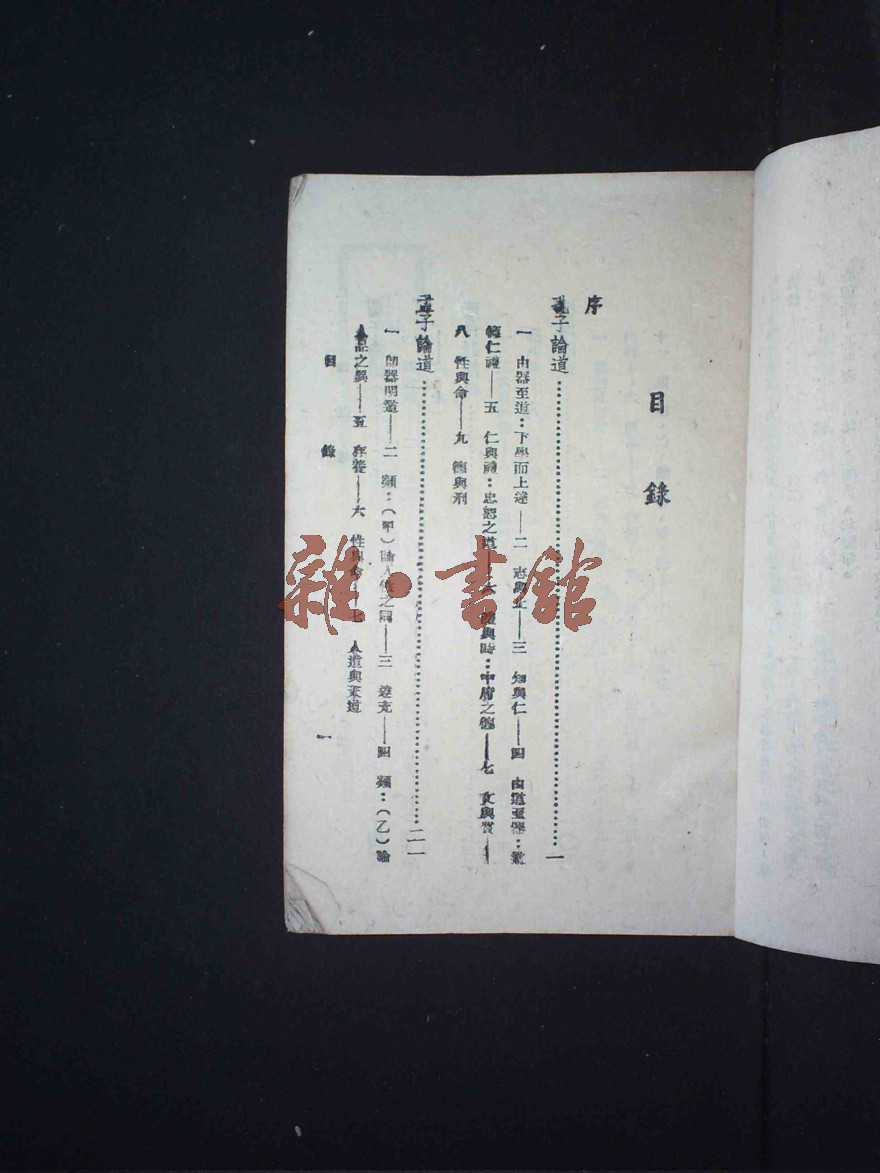 目錄
序
孔子論道……一
一 由器至道：下學而上達——二 志與立——三 知與仁——四 由道至器：數
範仁禮——五 仁與禮：忠恕之道——六 禮與時：中庸之德——七 文與質——
八 性與命——九 德與刑
孟子論道……二一
一 即器明道——二 類：（甲）論人性之同——三 達充——四 類：（乙）論
人品之異——五 存養——六 性與命——七 人道與天道
目錄
一
雜·書館